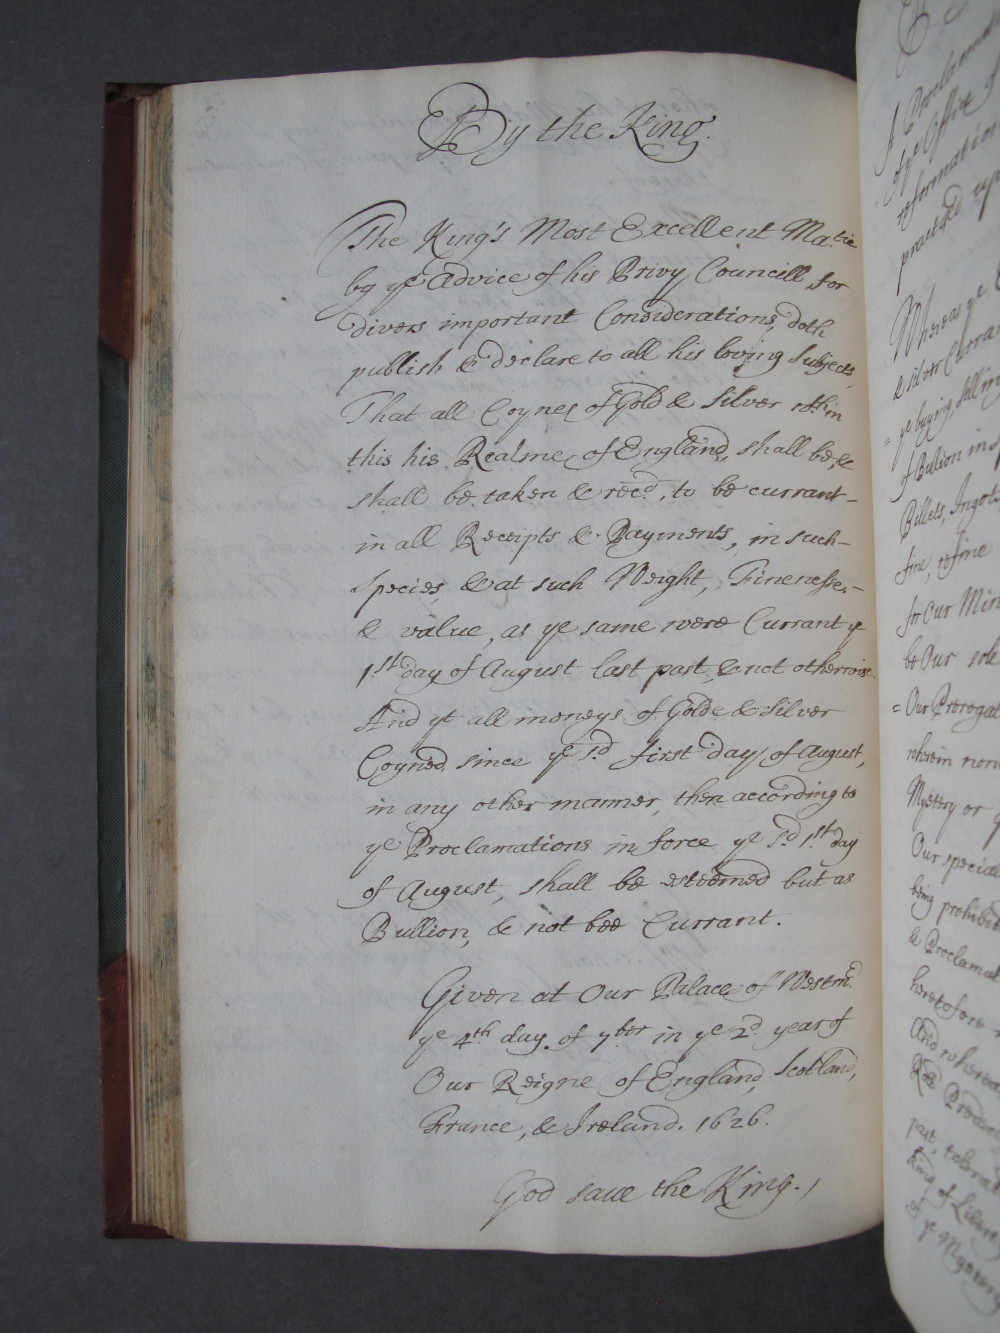 By the King.
The King's Most Excellent Matie
by ye Advice of his Privy Councill, for
divers important Considerations, doth
publish & declare to all his loving Subjects,
That all Coynes of Gold & Silver wthin
this his Realme of England, shall be, &
shall be taken & recd, to be currant-
in all Receipts & Payments, in such-
Species, & at such Weight, Finenesse,-
& value, as ye same were Currant ye
1st day of August last past, & not otherwise.
And yt all moneys of Golde & Silver
Coyned since ye sd first day of August,
in any other manner, then according to
ye Proclamations in force ye sd 1st day
of August, shall be esteemed but as
Bullion, & not bee Currant.
Given at Our Palace of Westmr
ye 4th day of 7ber in ye 2d year of
Our Reigne of England, Scotland,
France, & Ireland. 1626.
God save the King.,
A Proclamat
of ye Office of
reformation
practised up
Whereas ye
& silver Curra
= ye buying, sellin
of Bullion in
Billets, Ingots
fine, refine
for Our Min
be Our sole
= Our Prerogat
wherein non
Mystery or
Our special
being prohibit
& Proclamat
heretofore
And whereas
past, tolerat
kind of Liberty